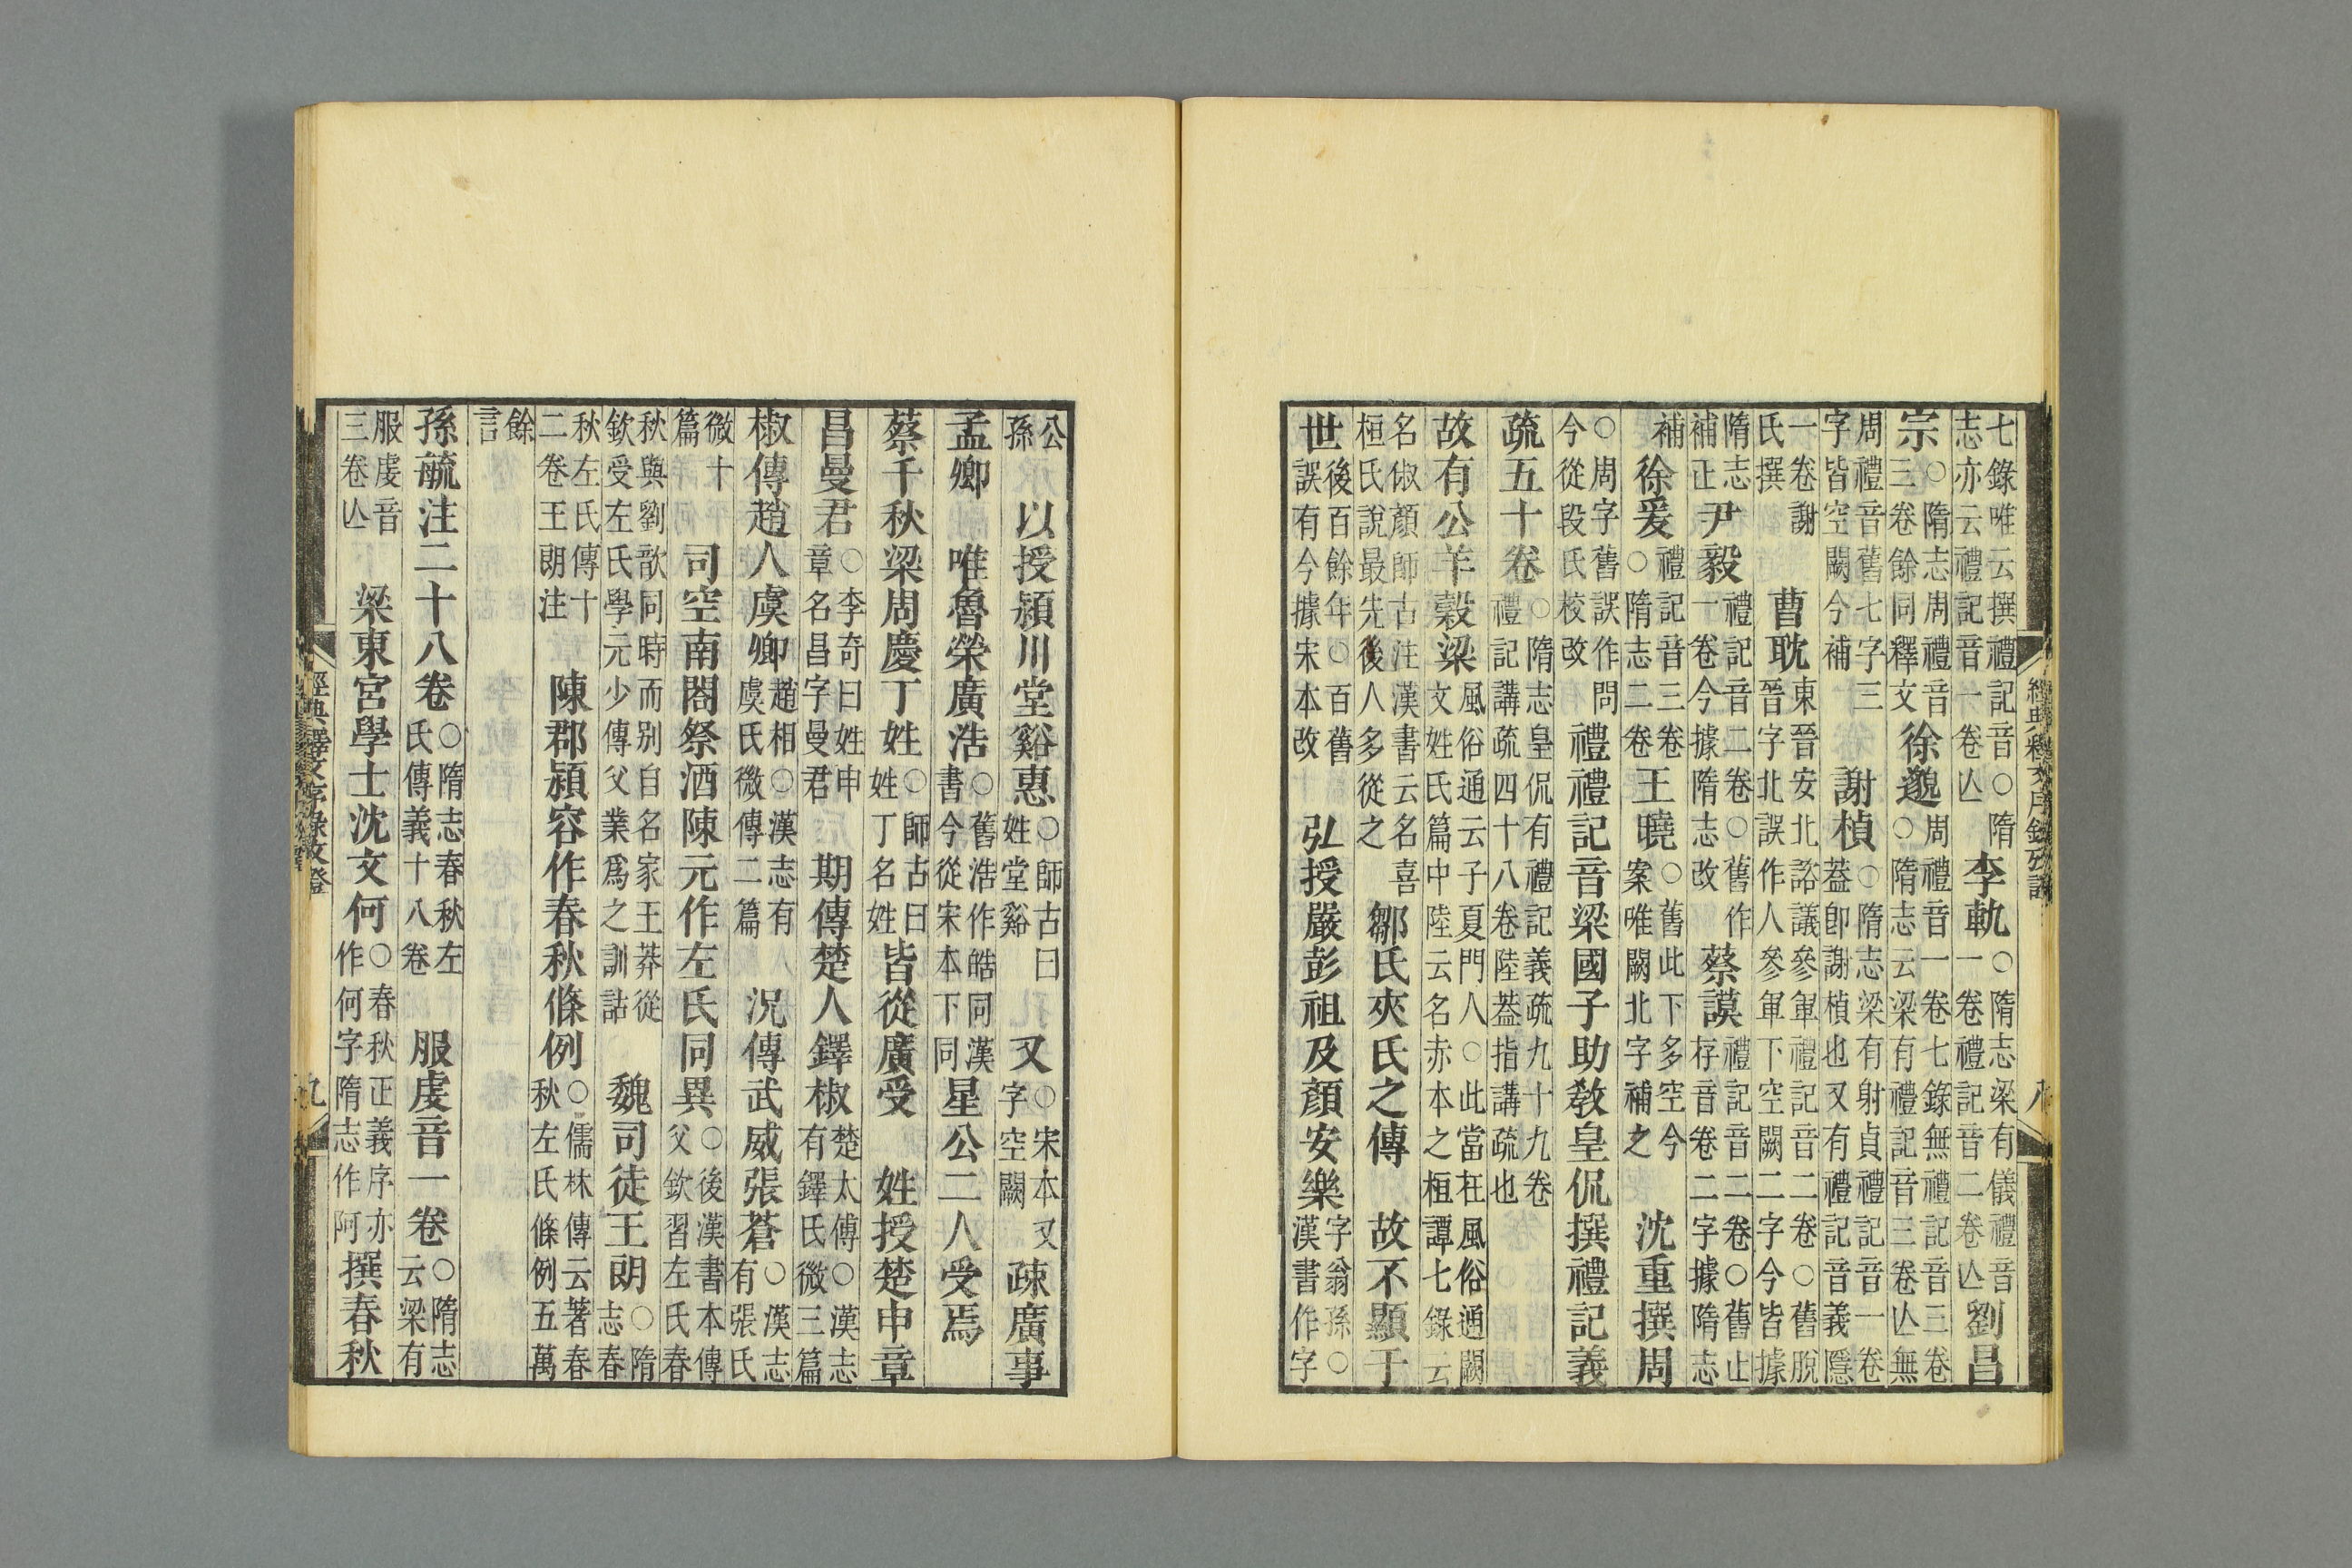 七錄唯云撰禮記音○隋志亦云禮記音一卷亾 李軌○隋志梁有儀禮音一卷禮記音二卷亾劉昌
宗○隋志周禮音三卷餘同釋文 徐邈周禮音一卷七錄無禮記音三卷○隋志云梁有禮記音三卷亾無
周禮音舊七字三字皆空闕今補 謝楨○隋志梁有射貞禮記音一卷蓋卽謝楨也又有禮記音義隱
一卷謝氏撰 曹耽東晉安北諮議參軍禮記音二卷○舊脫晉字北誤作人參軍下空闕二字今皆據
隋志補正 尹毅禮記音二卷○舊作一卷今據隋志改 蔡謨禮記音二卷○舊止存音卷二字據隋志
補 徐爰禮記音三卷○隋志二卷 王曉○舊此下多空今案唯闕北字補之 沈重撰周
○周字舊誤作問今從段氏校改 禮禮記音梁國子助敎皇侃撰禮記義
疏五十卷○隋志皇侃有禮記義疏九十九卷禮記講疏四十八卷陸蓋指講疏也
故有公羊榖梁風俗通云子夏門人○此當在風俗通闕文姓氏篇中陸云名赤本之桓譚七錄云
名俶顏師古注漢書云名喜桓氏說最先後人多從之 鄒氏夾氏之傳 故不顯于
世後百餘年○百舊誤有今據宋本改 弘授嚴彭祖及顏安樂字翁孫○漢書作字
經典釋文序錄攷證 八
公孫 以授潁川堂谿惠○師古曰姓堂谿 又○宋本又字空闕 疎廣事
孟卿 唯魯榮廣浩○舊浩作皓同漢書今從宋本下同 星公二人受焉
蔡千秋梁周慶丁姓○師古曰姓丁名姓 皆從廣受 姓授楚申章
昌曼君○李奇曰姓申章名昌字曼君 期傳楚人鐸椒楚太傅○漢志有鐸氏微三篇
椒傳趙人虞卿趙相○漢志有虞氏微傳二篇 況傳武威張蒼○漢志有張氏
微十篇 司空南閤祭酒陳元作左氏同異○後漢書本傳父欽習左氏春
秋與劉歆同時而别自名家王莽從欽受左氏學元少傳父業爲之訓詁 魏司徒王朗○隋志春
秋左氏傳十二卷王朗注 陳郡潁容作春秋條例○儒林傳云著春秋左氏條例五萬
餘言
孫毓注二十八卷○隋志春秋左氏傳義十八卷 服虔音一卷○隋志云梁有
服虔音三卷亾 梁東宮學士沈文何○春秋正義序亦作何字隋志作阿 撰春秋
經典釋文序錄攷證 九